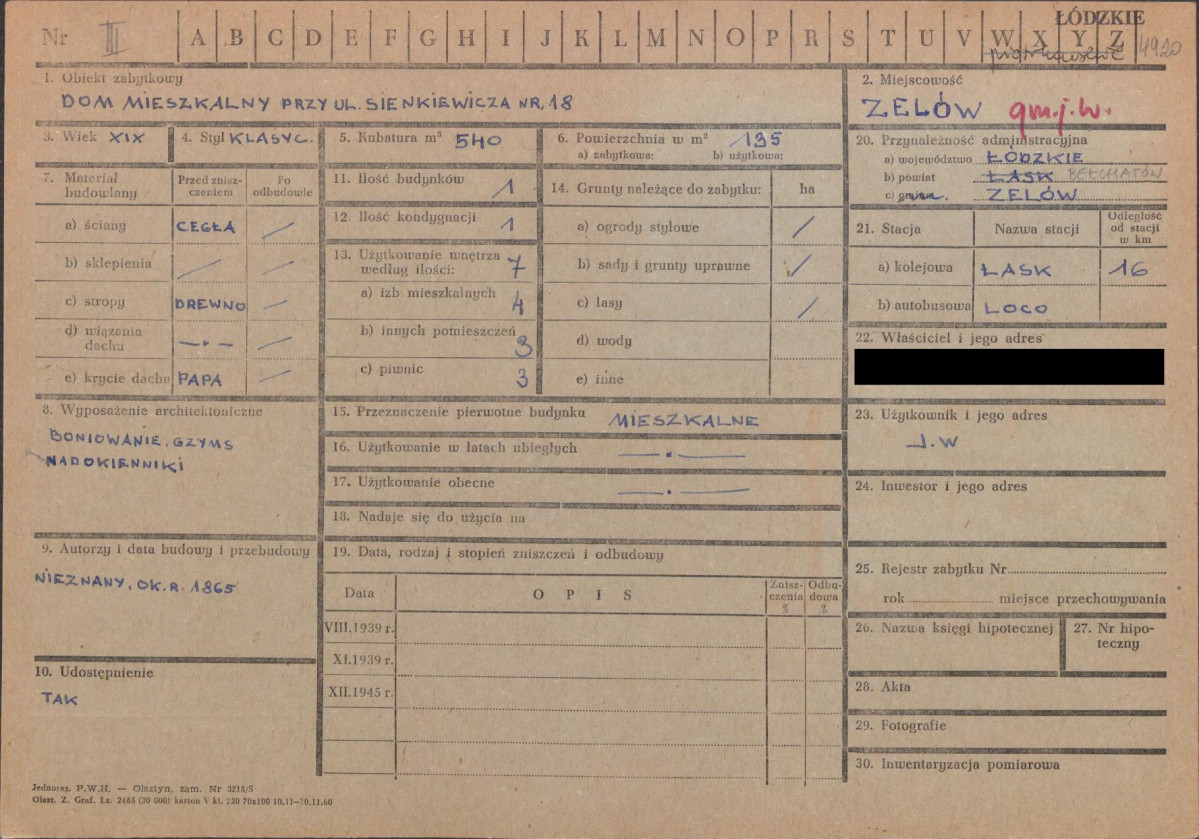 Nr III A B C D E F G H I J K L M N O P R S T U V W X Y Z
ŁÓDZKIE
piotrkowskie 4920
1. Obiekt zabytkowy
DOM MIESZKALNY PRZY UL. SIENKIEWICZA NR. 18
2. Miejscowość
ZELÓW gm.j.w.
3. Wiek XIX
4. Styl KLASYC.
5. Kubatura m³ 540
6. Powierzchnia w m² 135
a) zabytkowa: b) użytkowa:
7. Materiał budowlany
Przed zniszczeniem
Po odbudowie
a) ściany CEGŁA /
b) sklepienia / /
c) stropy DREWNO /
d) wiązania dachu —„— /
e) krycie dachu PAPA /
8. Wyposażenie architektoniczne
BONIOWANIE, GZYMS
NADOKIENNIKI
9. Autorzy i data budowy i przebudowy
NIEZNANY, OK. R. 1865
10. Udostępnienie
TAK
11. Ilość budynków 1
12. Ilość kondygnacji 1
13. Użytkowanie wnętrza według ilości: 7
a) izb mieszkalnych 4
b) innych pomieszczeń 3
c) piwnic 3
14. Grunty należące do zabytku: ha
a) ogrody stylowe /
b) sady i grunty uprawne /
c) lasy /
d) wody
e) inne
15. Przeznaczenie pierwotne budynku MIESZKALNE
16. Użytkowanie w latach ubiegłych —„—
17. Użytkowanie obecne —„—
18. Nadaje się do użycia na
19. Data, rodzaj i stopień zniszczeń i odbudowy
Data OPIS Zniszczenia % Odbudowa %
VIII.1939 r.
XI.1939 r.
XII.1945 r.
20. Przynależność administracyjna
a) województwo ŁÓDZKIE
b) powiat ŁASK BEŁCHATÓW
c) gmina ZELÓW
21. Stacja Nazwa stacji Odległość od stacji w km
a) kolejowa ŁASK 16
b) autobusowa LOCO
22. Właściciel i jego adres
23. Użytkownik i jego adres
J.W
24. Inwestor i jego adres
25. Rejestr zabytku Nr
rok miejsce przechowywania
26. Nazwa księgi hipotecznej
27. Nr hipoteczny
28. Akta
29. Fotografie
30. Inwentaryzacja pomiarowa
Jednoraz. P.W.H. — Olsztyn, zam. Nr 3218/S
Olszt. Z. Graf. Lz. 2485 (30 000) karton V kl. 220 70x100 10.11—30.11.60